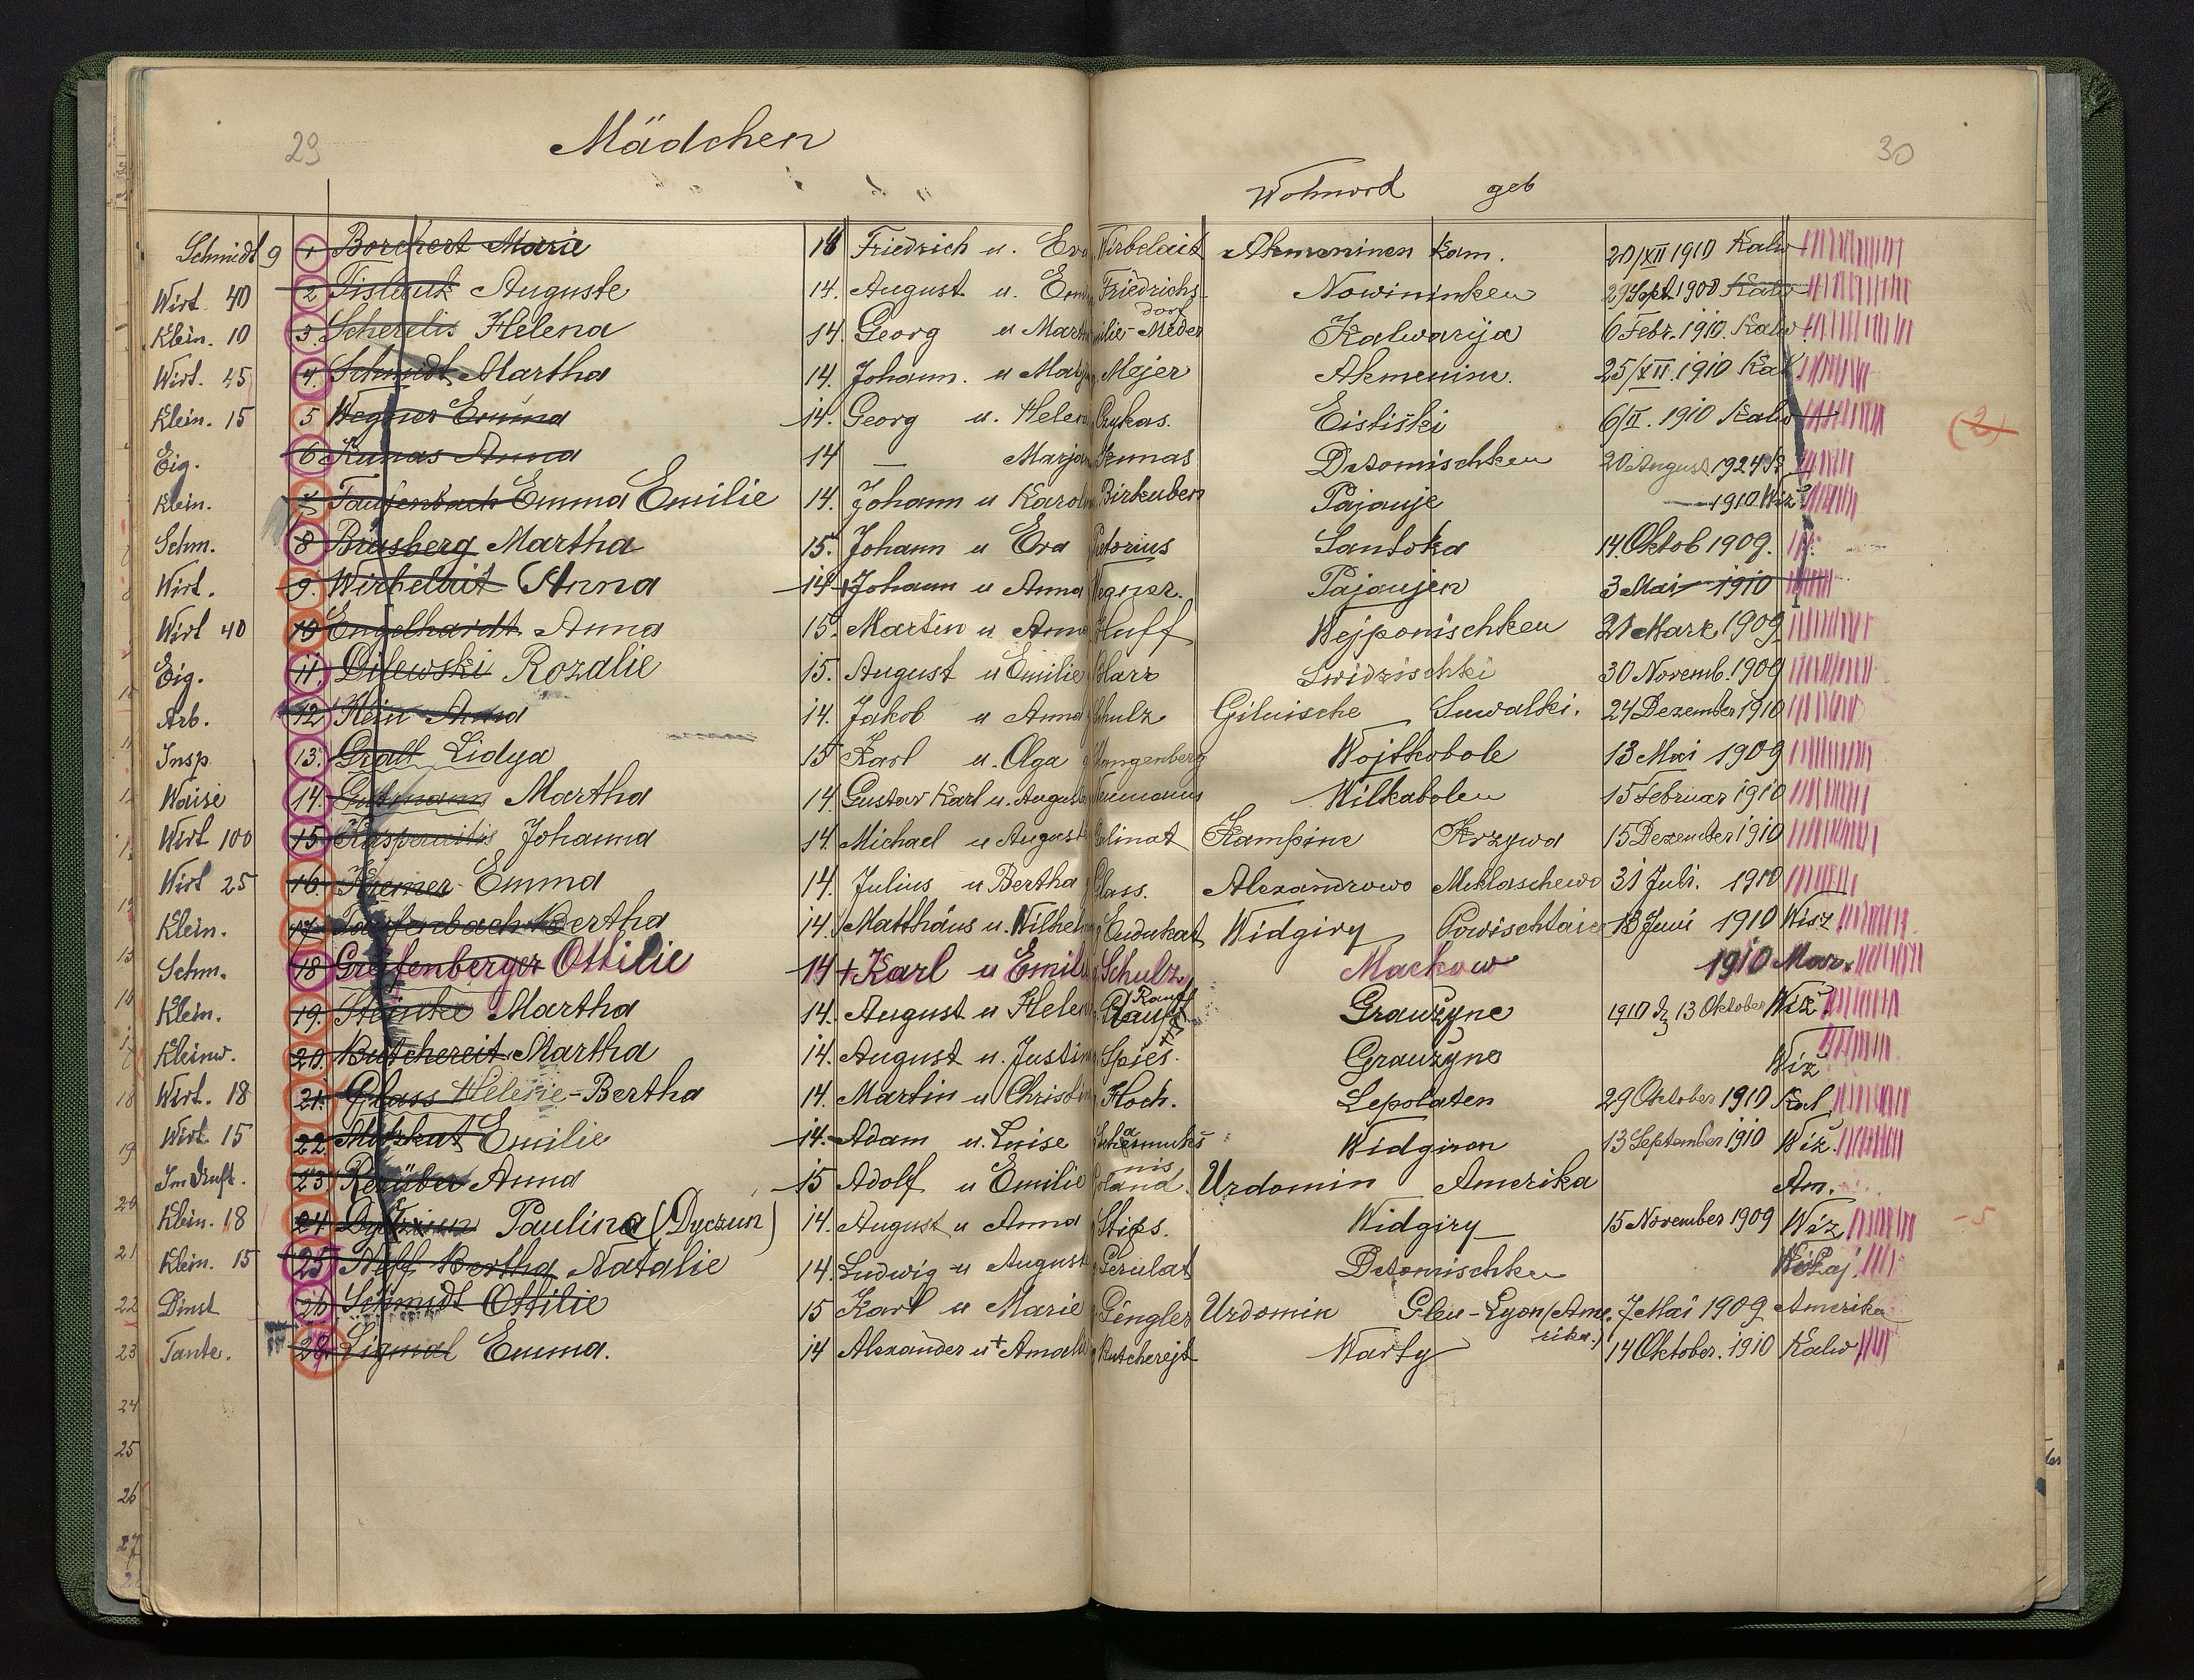 29
Mädchen
30
Wohnord geb
Schmidt 9 1 Borchert Marie 18 Friedrich u. Eva Wirbelait Akmeninen Kam. 20/XII 1910 Kalw
Wirt. 40 2 Auguste 14. August u. Friedrichsdorf Nowininken 29 Sept. 1908 Kalw
Klein. 10 3. Scherelis Helena 14. Georg u Nieder Kalwarija 6 Febr. 1910. Kalw.
Wirt. 45 4. Schmidt Martha 14. Johann. u Mejer Akmenine. 25/XII. 1910 Kal
Klein. 15 5 Wegner Emma 14. Georg u. Helen Eistiški 6/II. 1910 Kalw
Eig. 6 Kunas Anna 14 — Marjan Kunas Detomischken 20 August 1924
Klein. 7 Taufenbach Emma Emilie 14. Johann u Karol Birkuben Pajauje — 1910 Wiz
Schm. 8 Brusberg Martha 15. Johann u Eva Santoka 14. Oktob 1909.
Wirt. 9. Wirbelait Anna 14 Johann u Anna Wegner. Pajaujen 3 Mai 1910
Wirt 40 10 Engelhardt Anna 15. Martin u. Anna Huff Wejponischken 21 Marz 1909
Eig. 11. Dilewski Rozalie 15. August u Emilie Swidzischki 30 Novemb. 1909
Arb. 12 Klein Anna 14. Jakob u Anna Schulz Giluische Suwalki. 24 Dezember 1910
Insp. 13. Lidya 15 Karl u. Olga Wangenberg Wojtkobole 13 Mai 1909
Waise 14. Gutmann Martha 14. Gustav Karl u. Auguste Neumann Wilkabolen 15 Februar 1910
Wirt 100 15. Kasperaitis Johanna 14. Michael u August Galinat Kampine Krzywa 15 Dezember 1910
Wirt 25 16. Kremer Emma 14. Julius u Bertha Glass. Alexandrowo Meklaschewo 31 Juli. 1910
Klein. 17. Taufenbach Bertha 14. Matthäus u. Wilhelm Endukat Widgiry Powischtaice 13 Juni 1910 Wisz.
Schm. 18 Greifenberger Ottilie 14 + Karl u Emili Schulz Mackow 1910 Mar.
Klein. 19. Steinke Martha 14. August u Helen Rauft Rauft Grauzyne 1910 13 Oktober Wiz.
Kleinw. 20. Butchereit Martha 14. August u. Justin Spies. Grauzyne Wiz
Wirt. 18 21. Glass Helene-Bertha 14. Martin u Christin Hoch. Lepolaten 29 Oktober 1910 Kal
Wirt. 15 22. Mitzkut Emilie 14. Adam u. Luise Widgiren 13 September 1910 Wiz.
23. Anna 15 Adolf u Emilie Urdomin Amerika Am.
Klein. 18 24. Paulina (Dyczun) 14. August u Anna Stips. Widgiry 15 November 1909 Wiz -5
Klein. 15 25 Neff Bertha Natalie 14. Ludwig u August Perulat Detomischken
Dinst 26 Schmidt Ottilie 15 Karl u Marie Gingler Urdomin Glen-Lyon (Amerika.) 7 Mai 1909 Amerika
Tante. 28. Ligmal Emma. 14 Alexander u + Amali Butcherejt Warty 14 Oktober. 1910 Kalw
(2)